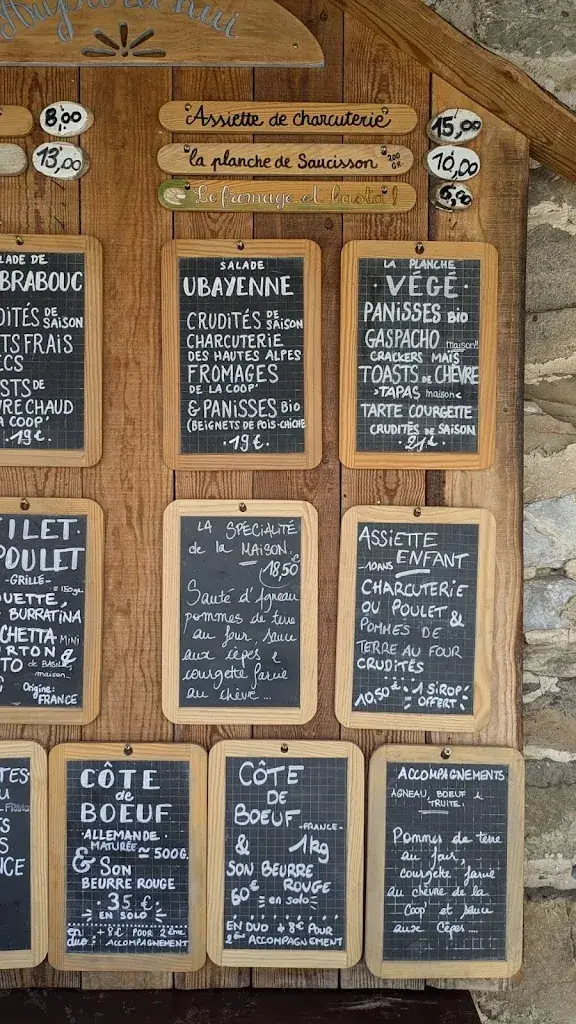 Aujourd'hui
8,00
13,00
Assiette de charcuterie 15,00
la planche de Saucisson 200 GR. 10,00
Le fromage et basta ! 6,00
LADE DE
BRABOUC
DITÉS DE SAISON
TS FRAIS
ECS
STS DE
VRE CHAUD
A COOP'
19€.
SALADE
UBAYENNE
CRUDITÉS DE SAISON
CHARCUTERIE
DES HAUTES ALPES
FROMAGES
DE LA COOP'
& PANISSES BIO
(BEIGNETS DE POIS-CHICHE
19€.
LA PLANCHE
VÉGÉ
PANISSES BIO
GASPACHO maison!!
CRACKERS MAÏS
TOASTS DE CHÈVRE
>TAPAS maison<
TARTE COURGETTE
CRUDITÉS DE SAISON
21€
ILET
POULET
-GRILLÉ-
UETTE,
BURRATINA
CHETTA MINI
RTON
TO de BASILIC
maison
Origine:
FRANCE
LA SPÉCIALITÉ
de la MAISON.
18,50
Sauté d'Agneau
pommes de terre
au four, sauce
aux cèpes &
courgette farcie
au chèvre ...
ASSIETTE
ENFANT
-10ANS
CHARCUTERIE
OU POULET &
POMMES DE
TERRE AU FOUR
CRUDITÉS
10,50€ 1 SIROP
OFFERT
CÔTE
de
BOEUF
ALLEMANDE
MATURÉE ≃500G.
& SON
BEURRE ROUGE
35 €
EN SOLO
en duo: + 8€ POUR 2ÈME
ACCOMPAGNEMENT
CÔTE
DE
BOEUF -FRANCE-
& 1kg
SON BEURRE
ROUGE
60€ en solo
EN DUO + 8€ POUR
2ÈME ACCOMPAGNEMENT
ACCOMPAGNEMENTS
AGNEAU, BOEUF &
TRUITE:
Pommes de terre
au four,
courgette farcie
au chèvre de la
Coop' et sauce
aux Cèpes ....